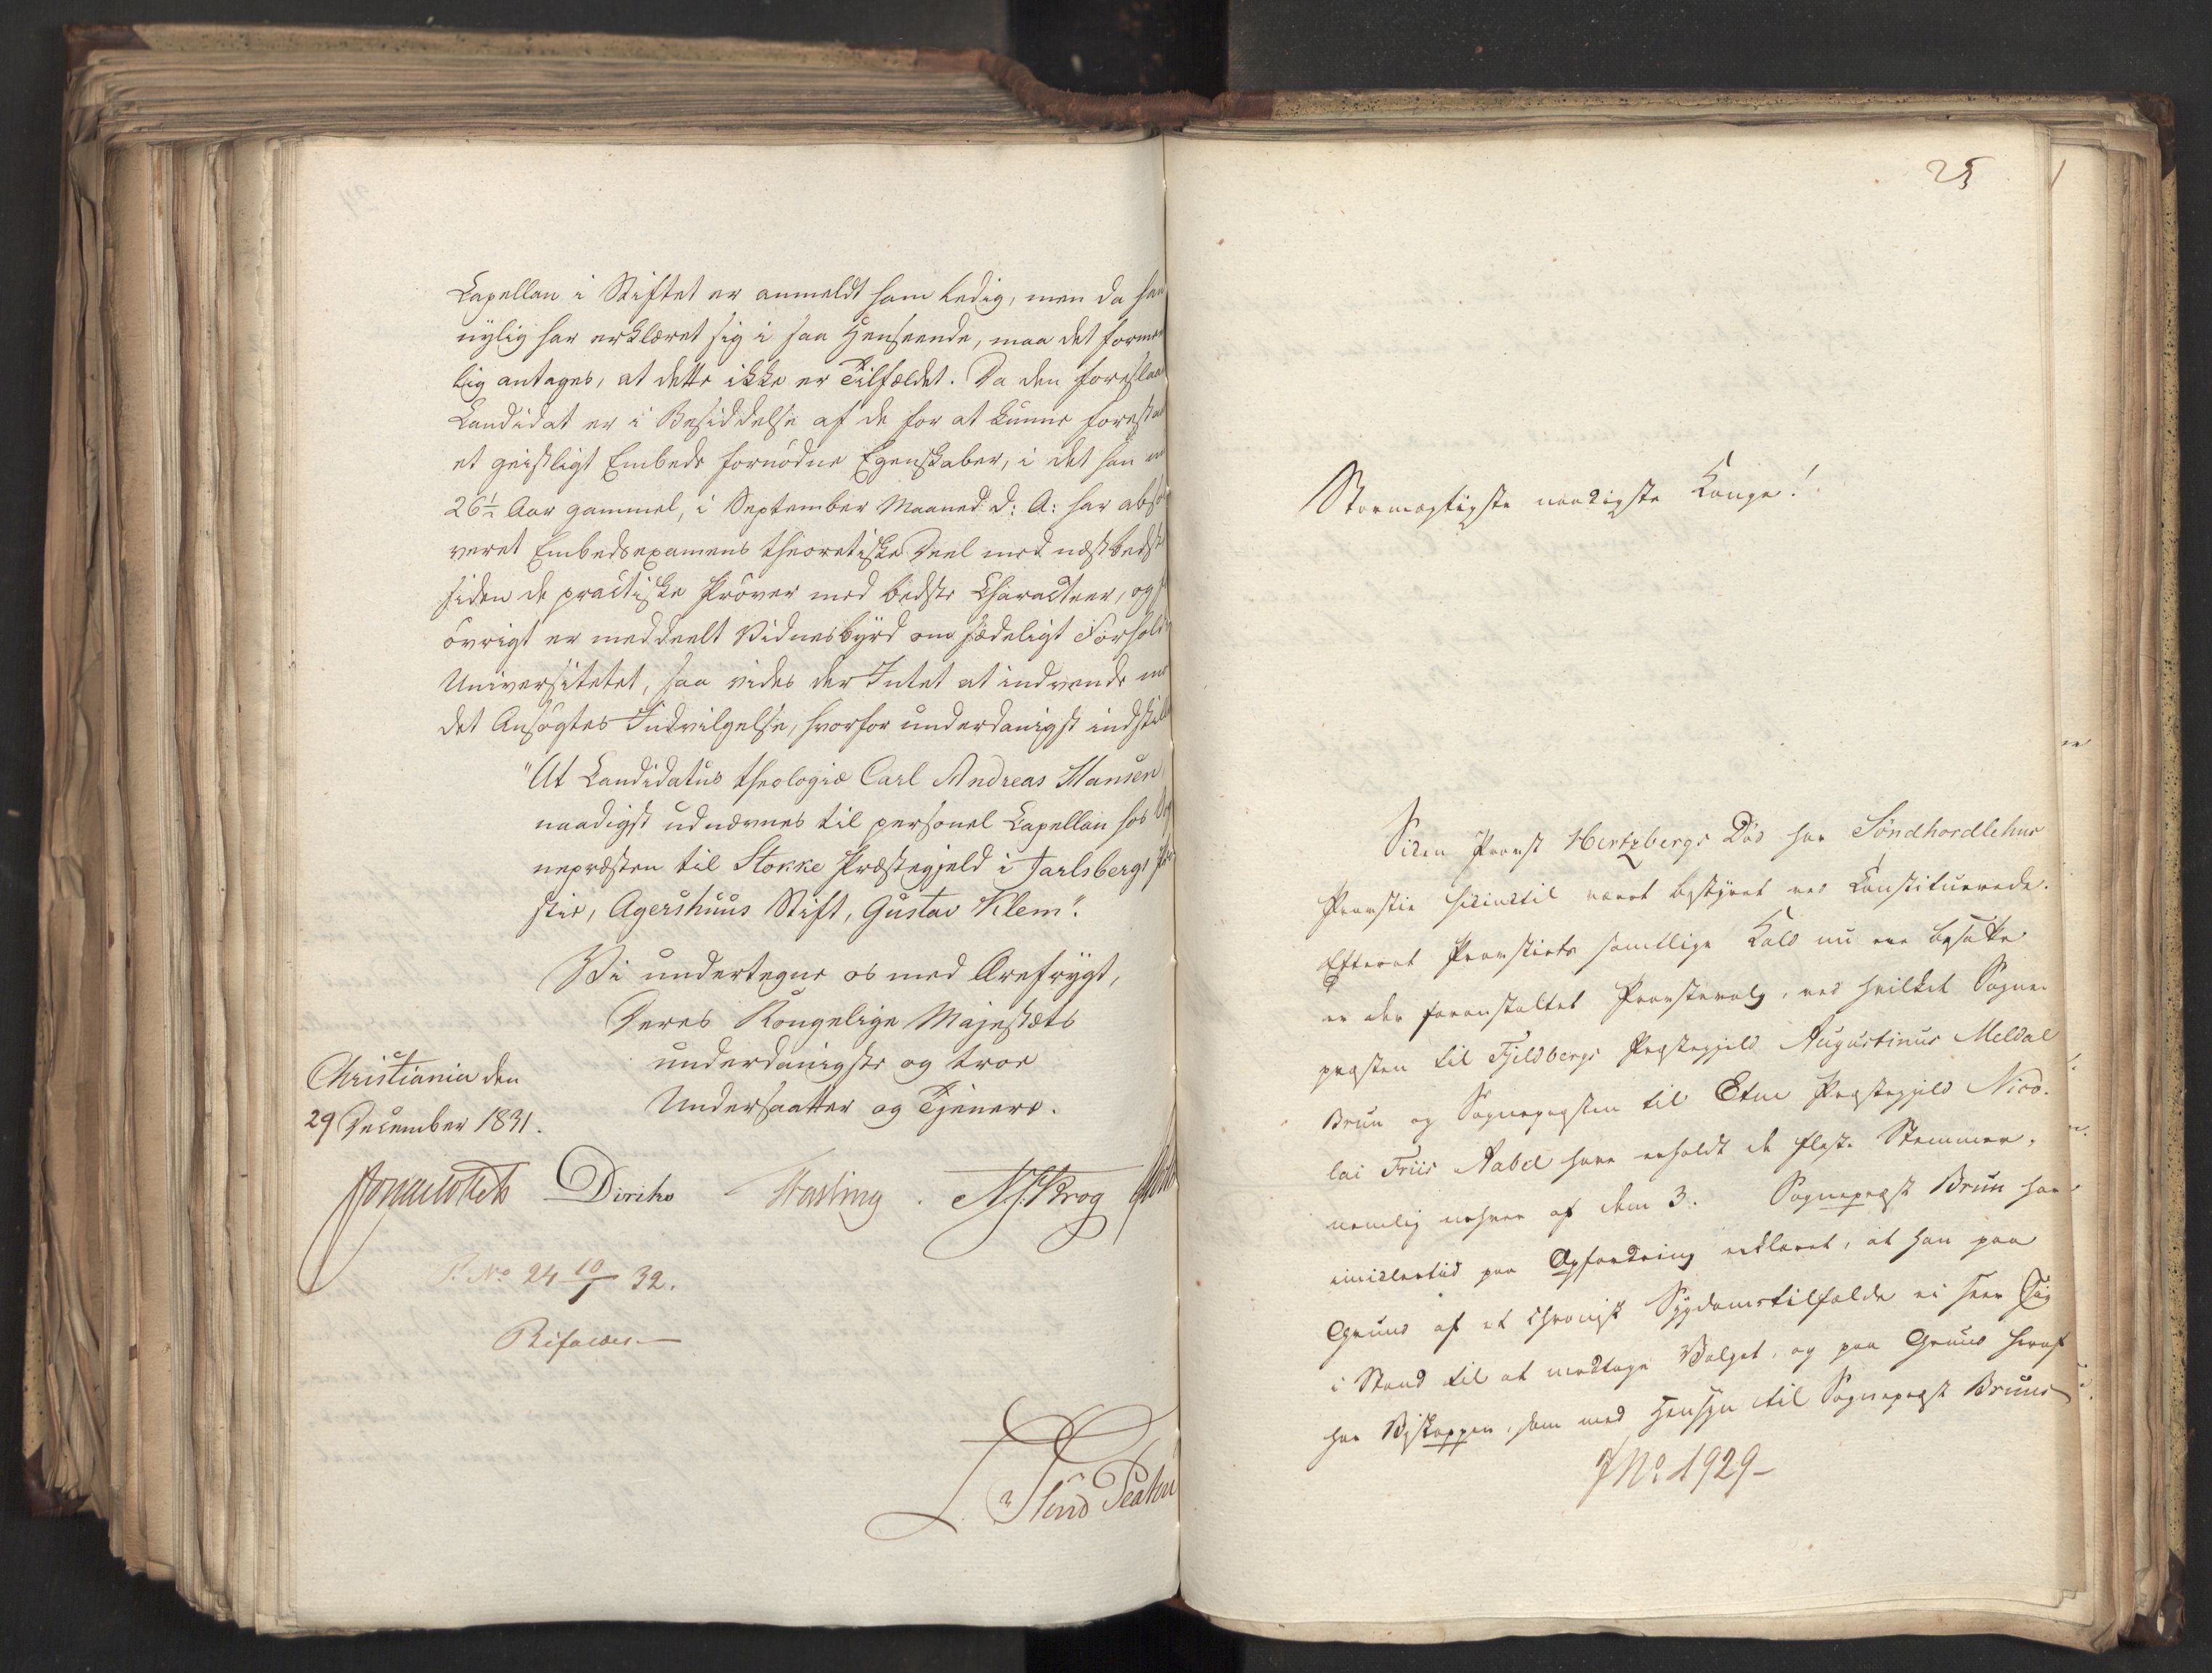 Capellan i Stiftet er anmeldt som ledig, men da han
nylig har erklæret sig i saa Henseende, maa det formo
lig antages, at dette ikke er Tilfældet. Da den foreslaa
Candidat er i Besiddelse af de for at kunne forestaa
et geistligt Embede fornödne Egenskaber, i det han
26½ Aar gammel, i September Maaned d: A: har abso
veret Embedsexamens theoretiske Deel med næstbedste
siden de practiske Pröver med bedste Characteer, og
övrigt er meddeelt Vidnesbyrd om sædeligt Forhold
Universitetet, saa vides der Intet at indvende
det Ansögtes Indvilgelse, hvorfor underdanigst indstill
"At Candidatus theologiæ Carl Andreas Hansen
naadigst udnævnes til personel Capellan hos
nepræsten til Stokke Præstegjeld i Jarlsbergs
stie, Agershuus Stift, Gustav Klem".
Vi undertegne os med Ærefrygt,
Deres Kongelige Majestæts
underdanigste og troe
Undersaatter og Tjenere.
Christiania den
29 December 1831.
Diriks N. J. Krog
No 24 10/1 32.
25
Stormægtigste naadigste Konge!
Siden Provst Hertzbergs Död har Söndhordlehns
Provstie hidindtil været bestyret ved Constituerede.
Efterat Provstiets samtlige Kald nu ere besatte
er der foranstaltet Provstevalg, ved hvilket Sogne-
præsten til Fjeldbergs Præstegjeld Augustinus Meldal
Brun og Sognepræsten til Etne Præstegjeld Nico-
lai Friis Aabel have erholdt de fleste Stemmer,
nemlig enhver af dem 3. Sognepræst Brun har
imidlertid paa Opfordring erklæret, at han paa
Grund af et chronisk Sygdomstilfælde ei seer sig
i Stand til at modtage Valget, og paa Grund heraf
har Biskoppen, som med Hensyn til Sognepræst Bruns
J No 1929-